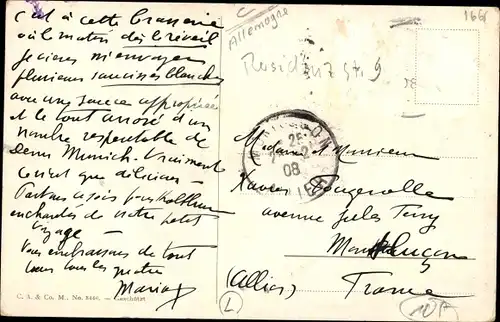 C'est à cette brasserie
où le matin dès le réveil
je viens m'envoyer
plusieurs saucisses blanches
avec une sauce appropriée
et le tout arrosé d'un
nombre respectable de
demis Munich. Vraiment
c'est que délicieux
Partons ce soir pour
enchantés de notre petit
voyage
Vous embrassons de tout
tous les quatre
Maria
C. A. & Co. M., No. — Geschützt
Allemagne
Residenzstr. 9
166
25
08
Madame et Monsieur
Xavier Fougerolle
avenue Jules Ferry
Montluçon
(Allier) France
L